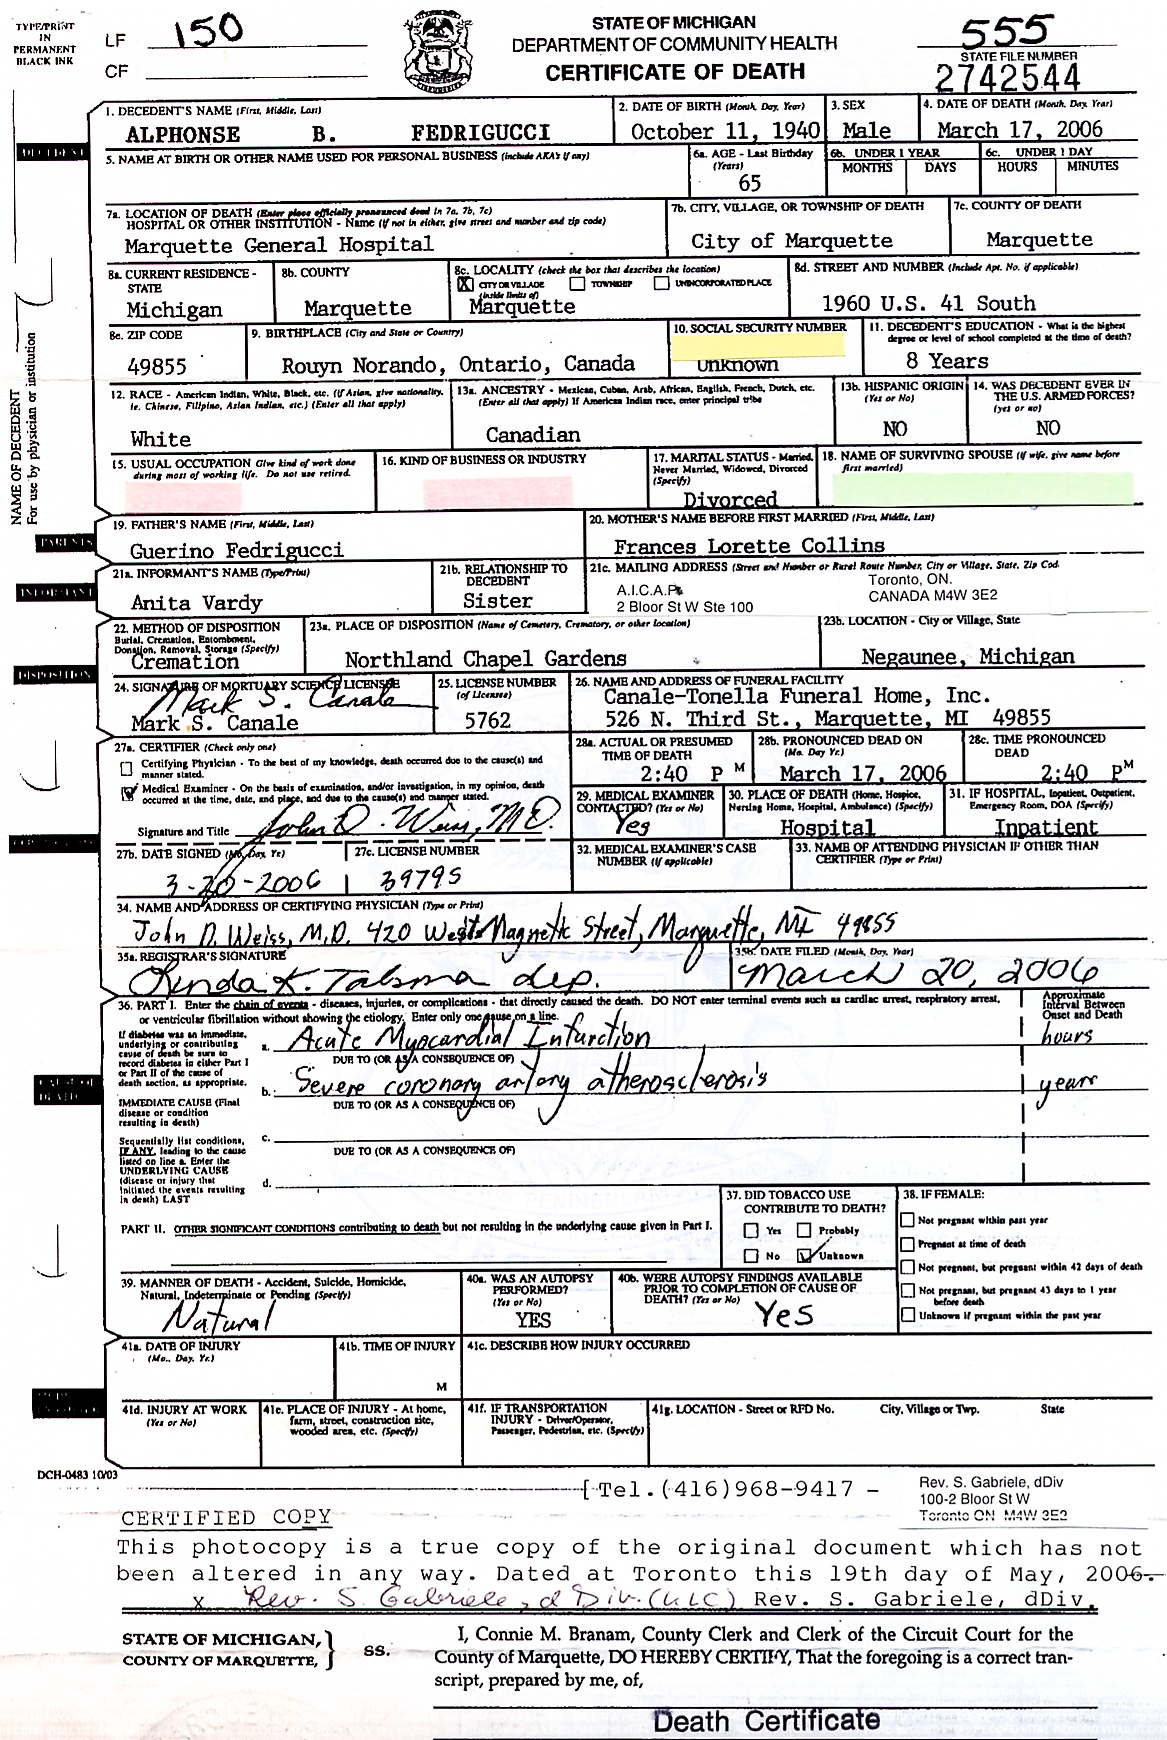 TYPE/PRINT
IN
PERMANENT
BLACK INK
LF 150
CF
STATE OF MICHIGAN
DEPARTMENT OF COMMUNITY HEALTH
CERTIFICATE OF DEATH
555
STATE FILE NUMBER
2742544
DECEDENT
1. DECEDENT'S NAME (First, Middle, Last)
ALPHONSE B. FEDRIGUCCI
2. DATE OF BIRTH (Month, Day, Year)
October 11, 1940
3. SEX
Male
4. DATE OF DEATH (Month, Day, Year)
March 17, 2006
5. NAME AT BIRTH OR OTHER NAME USED FOR PERSONAL BUSINESS (include AKA's if any)
6a. AGE - Last Birthday
(Years)
65
6b. UNDER 1 YEAR
MONTHS DAYS
6c. UNDER 1 DAY
HOURS MINUTES
7a. LOCATION OF DEATH (Enter place officially pronounced dead in 7a, 7b, 7c)
HOSPITAL OR OTHER INSTITUTION - Name (If not in either, give street and number and zip code)
Marquette General Hospital
7b. CITY, VILLAGE, OR TOWNSHIP OF DEATH
City of Marquette
7c. COUNTY OF DEATH
Marquette
8a. CURRENT RESIDENCE -
STATE
Michigan
8b. COUNTY
Marquette
8c. LOCALITY (check the box that describes the location)
X CITY OR VILLAGE TOWNSHIP UNINCORPORATED PLACE
(inside limits of)
Marquette
8d. STREET AND NUMBER (Include Apt. No. if applicable)
1960 U.S. 41 South
8e. ZIP CODE
49855
9. BIRTHPLACE (City and State or Country)
Rouyn Norando, Ontario, Canada
10. SOCIAL SECURITY NUMBER
Unknown
11. DECEDENT'S EDUCATION - What is the highest
degree or level of school completed at the time of death?
8 Years
NAME OF DECEDENT
For use by physician or institution
12. RACE - American Indian, White, Black, etc. (if Asian, give nationality,
ie. Chinese, Filipino, Asian Indian, etc.) (Enter all that apply)
White
13a. ANCESTRY - Mexican, Cuban, Arab, African, English, French, Dutch, etc.
(Enter all that apply) If American Indian race, enter principal tribe
Canadian
13b. HISPANIC ORIGIN
(Yes or No)
NO
14. WAS DECEDENT EVER IN
THE U.S. ARMED FORCES?
(yes or no)
NO
15. USUAL OCCUPATION Give kind of work done
during most of working life. Do not use retired.
16. KIND OF BUSINESS OR INDUSTRY
17. MARITAL STATUS - Married,
Never Married, Widowed, Divorced
(Specify)
Divorced
18. NAME OF SURVIVING SPOUSE (If wife, give name before
first married)
PARENTS
19. FATHER'S NAME (First, Middle, Last)
Guerino Fedrigucci
20. MOTHER'S NAME BEFORE FIRST MARRIED (First, Middle, Last)
Frances Lorette Collins
INFORMANT
21a. INFORMANT'S NAME (Type/Print)
Anita Vardy
21b. RELATIONSHIP TO
DECEDENT
Sister
21c. MAILING ADDRESS (Street and Number or Rural Route Number, City or Village, State, Zip Cod
A.I.C.A.P.
2 Bloor St W Ste 100
Toronto, ON.
CANADA M4W 3E2
DISPOSITION
22. METHOD OF DISPOSITION
Burial, Cremation, Entombment,
Donation, Removal, Storage (Specify)
Cremation
23a. PLACE OF DISPOSITION (Name of Cemetery, Crematory, or other location)
Northland Chapel Gardens
23b. LOCATION - City or Village, State
Negaunee, Michigan
24. SIGNATURE OF MORTUARY SCIENCE LICENSEE
Mark S. Canale
Mark S. Canale
25. LICENSE NUMBER
(of Licensee)
5762
26. NAME AND ADDRESS OF FUNERAL FACILITY
Canale-Tonella Funeral Home, Inc.
526 N. Third St., Marquette, MI 49855
27a. CERTIFIER (Check only one)
Certifying Physician - To the best of my knowledge, death occurred due to the cause(s) and
manner stated.
Medical Examiner - On the basis of examination, and/or investigation, in my opinion, death
occurred at the time, date, and place, and due to the cause(s) and manner stated.
Signature and Title John D. Weiss, MD.
28a. ACTUAL OR PRESUMED
TIME OF DEATH
2:40 P M
28b. PRONOUNCED DEAD ON
(Mo. Day Yr.)
March 17, 2006
28c. TIME PRONOUNCED
DEAD
2:40 P M
29. MEDICAL EXAMINER
CONTACTED? (Yes or No)
Yes
30. PLACE OF DEATH (Home, Hospice,
Nursing Home, Hospital, Ambulance) (Specify)
Hospital
31. IF HOSPITAL, Inpatient, Outpatient,
Emergency Room, DOA (Specify)
Inpatient
27b. DATE SIGNED (Mo, Day, Yr)
3-20-2006
27c. LICENSE NUMBER
39795
32. MEDICAL EXAMINER'S CASE
NUMBER (if applicable)
33. NAME OF ATTENDING PHYSICIAN IF OTHER THAN
CERTIFIER (Type or Print)
34. NAME AND ADDRESS OF CERTIFYING PHYSICIAN (Type or Print)
John D. Weiss, M.D. 420 West Magnetic Street, Marquette, MI 49855
35a. REGISTRAR'S SIGNATURE
Linda K. Talsma dep.
35b. DATE FILED (Month, Day, Year)
March 20, 2006
36. PART I. Enter the chain of events - diseases, injuries, or complications - that directly caused the death. DO NOT enter terminal events such as cardiac arrest, respiratory arrest,
or ventricular fibrillation without showing the etiology. Enter only one cause on a line.
Approximate
Interval Between
Onset and Death
If diabetes was an immediate,
underlying or contributing
cause of death be sure to
record diabetes in either Part I
or Part II of the cause of
death section, as appropriate.
a. Acute Myocardial Infarction hours
DUE TO (OR AS A CONSEQUENCE OF)
CAUSE OF
DEATH
b. Severe coronary artery atherosclerosis years
DUE TO (OR AS A CONSEQUENCE OF)
IMMEDIATE CAUSE (Final
disease or condition
resulting in death)
Sequentially list conditions,
IF ANY, leading to the cause
listed on line a. Enter the
UNDERLYING CAUSE
(disease or injury that
initiated the events resulting
in death) LAST
c.
DUE TO (OR AS A CONSEQUENCE OF)
d.
PART II. OTHER SIGNIFICANT CONDITIONS contributing to death but not resulting in the underlying cause given in Part I.
37. DID TOBACCO USE
CONTRIBUTE TO DEATH?
Yes Probably
No Unknown
38. IF FEMALE:
Not pregnant within past year
Pregnant at time of death
Not pregnant, but pregnant within 42 days of death
Not pregnant, but pregnant 43 days to 1 year
before death
Unknown if pregnant within the past year
39. MANNER OF DEATH - Accident, Suicide, Homicide,
Natural, Indeterminate or Pending (Specify)
Natural
40a. WAS AN AUTOPSY
PERFORMED?
(Yes or No)
YES
40b. WERE AUTOPSY FINDINGS AVAILABLE
PRIOR TO COMPLETION OF CAUSE OF
DEATH? (Yes or No)
Yes
41a. DATE OF INJURY
(Mo., Day, Yr.)
41b. TIME OF INJURY
M
41c. DESCRIBE HOW INJURY OCCURRED
41d. INJURY AT WORK
(Yes or No)
41e. PLACE OF INJURY - At home,
farm, street, construction site,
wooded area, etc. (Specify)
41f. IF TRANSPORTATION
INJURY - Driver/Operator,
Passenger, Pedestrian, etc. (Specify)
41g. LOCATION - Street or RFD No. City, Village or Twp. State
DCH-0483 10/03
[ Tel.(416)968-9417 -
Rev. S. Gabriele, dDiv
100-2 Bloor St W
Toronto ON M4W 3E2
CERTIFIED COPY
This photocopy is a true copy of the original document which has not
been altered in any way. Dated at Toronto this 19th day of May, 2006.
x Rev. S. Gabriele, d Div. (ULC) Rev. S. Gabriele, dDiv.
STATE OF MICHIGAN,
COUNTY OF MARQUETTE, } ss.
I, Connie M. Branam, County Clerk and Clerk of the Circuit Court for the
County of Marquette, DO HEREBY CERTIFY, That the foregoing is a correct tran-
script, prepared by me, of,
Death Certificate